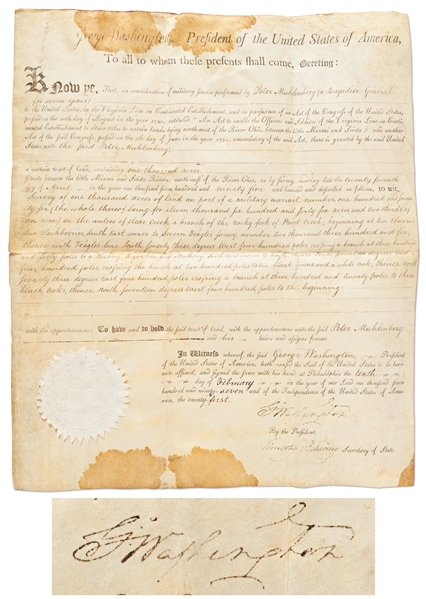 George Washington, President of the United States of America,
To all to whom these presents shall come, Greeting:
Know ye, That, in consideration of military service performed by Peter Muhlenberg (a Brigadier General
for seven years)
to the United States, in the Virginia Line on Continental Establishment, and in pursuance of an Act of the Congress of the United States,
passed on the 10th day of August in the year 1790, entitled "An Act to enable the Officers and Soldiers of the Virginia Line on Conti-
nental Establishment to obtain titles to certain lands lying northwest of the River Ohio, between the Little Miami and Sciota," and another
Act of the said Congress, passed on the 9th of June in the year 1794, amendatory of the said Act, there is granted by the said United
States unto the said Peter Muhlenberg
a certain tract of land, containing one thousand acres
situate between the Little Miami and Sciota Rivers, northwest of the River Ohio, as by survey, bearing date the twenty seventh
day of April in the year one thousand seven hundred and ninety five and bounded and described as follows, to wit,
Survey of one thousand acres of land on part of a military warrant number one hundred and
for the whole thereof being for eleven thousand six hundred and sixty six acres and two thirds of
an acre) on the waters of Deer Creek a branch of the
thence south seventy three degrees West four hundred poles crossing a branch at three hundred
and forty poles to a
four hundred poles crossing the branch at two hundred poles to two black oaks and a white oak, thence North
seventy three degrees East four hundred poles crossing a branch at three hundred and twenty poles to three
black oaks, thence North seventeen degrees West four hundred poles to the beginning
with the appurtenances: To have and to hold the said tract of land, with the appurtenances unto the said Peter Muhlenberg
and his heirs and assigns forever.
In Witness whereof, the said George Washington, President
of the United States of America, hath caused the Seal of the United States to be here-
unto affixed, and signed the same with his hand at Philadelphia the tenth
day of February in the year of our Lord one thousand seven
hundred and ninety seven and of the Independence of the United States of Ame-
rica, the twenty first.
G:Washington
By the President,
Timothy Pickering Secretary of State.
G:Washington